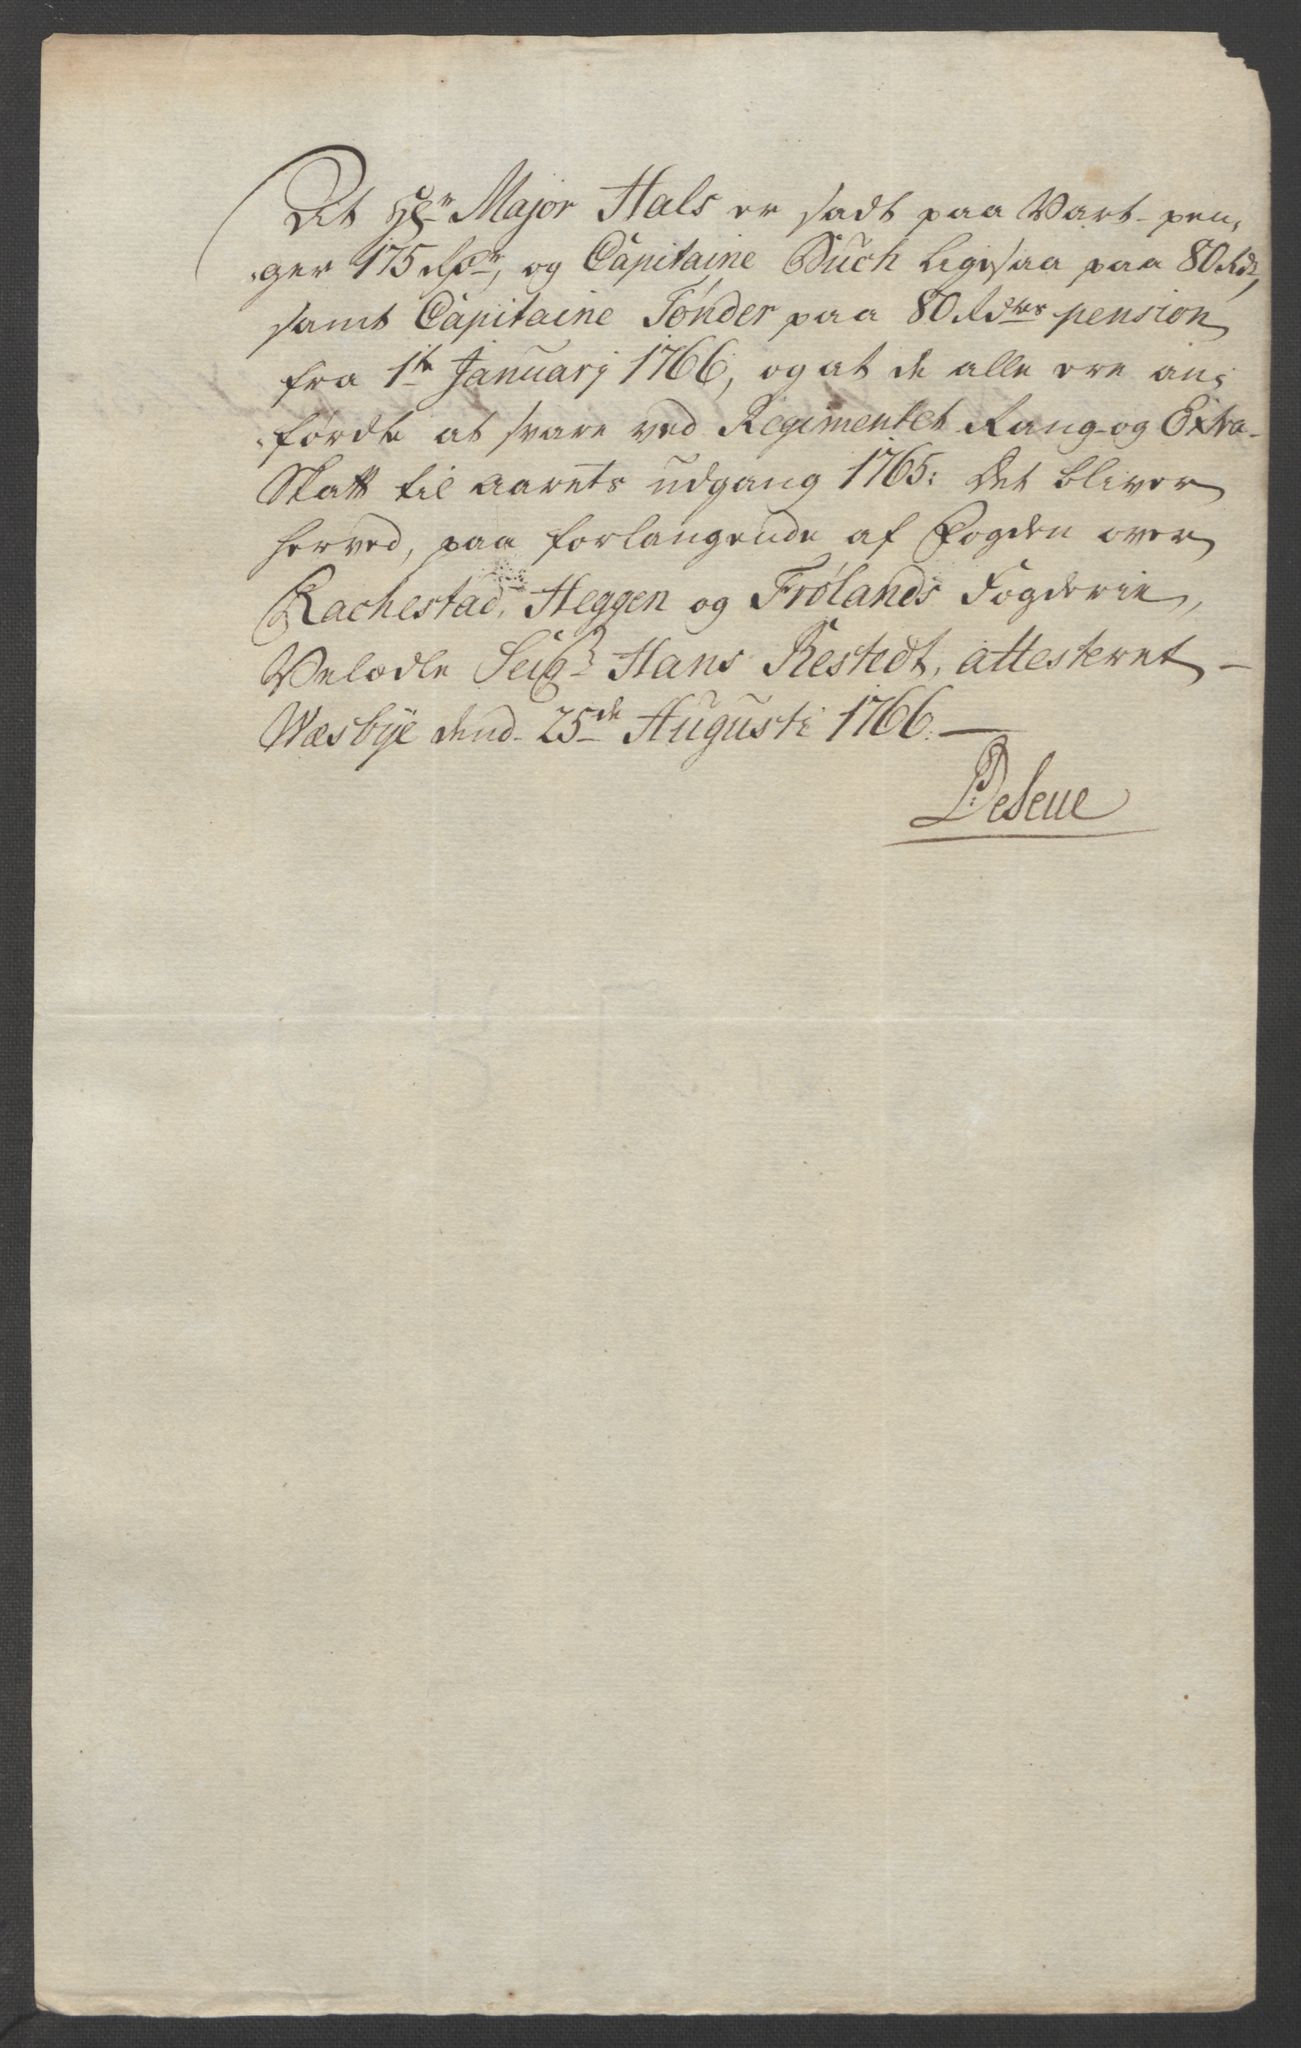 At Hr Major Hals er sadt paa Vart-pen,
ger 175 Rdr, og Capitaine Buch ligesaa paa 80 Rdr,
samt Capitaine Tønder paa 80 Rdrs pension
fra 1te Januarj 1766, og at de alle ere an,
førdte at svare ved Regimentet Rang- og Extra-
Skatt til aarets udgang 1765: Det bliver
herved, paa forlangende af Fogden over
Rachestad, Heggen og Frølands Fogderie,
Velædle Seigr Hans Restedt, attesteret -
Wæsbye dend 25de Augusti 1766. -
DeSeue